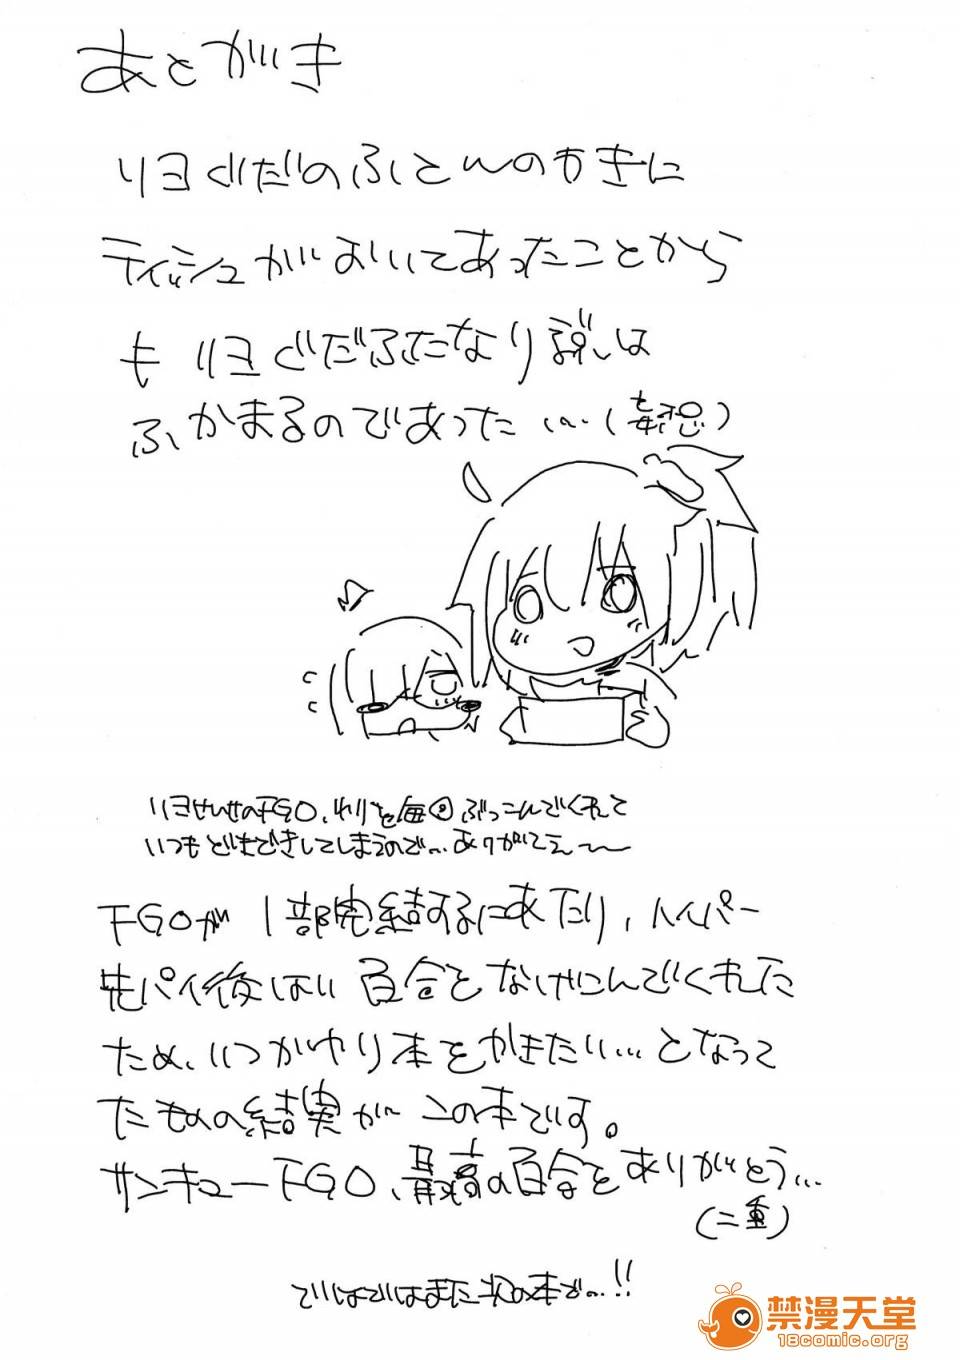 あとがき
リヨぐだのふとんのわきに
ティッシュがおいてあったことから
も リヨぐだふたなり説は
ふかまるのであった…(妄想)
リヨせんせのFGO、わりと毎回ぶっこんでくれて
いつもどきどきしてしまうので… ありがてぇ〜
FGOが1部完結するにあたり、ハイパー
先パイ後はい百合をなげこんでくれた
ため、いつかやり本をかきたい…となって
たものの結実が この本です。
サンキューFGO、最高の百合をありがとう…
(二重)
ではではまた次の本で…!!
禁漫天堂
18comic.org